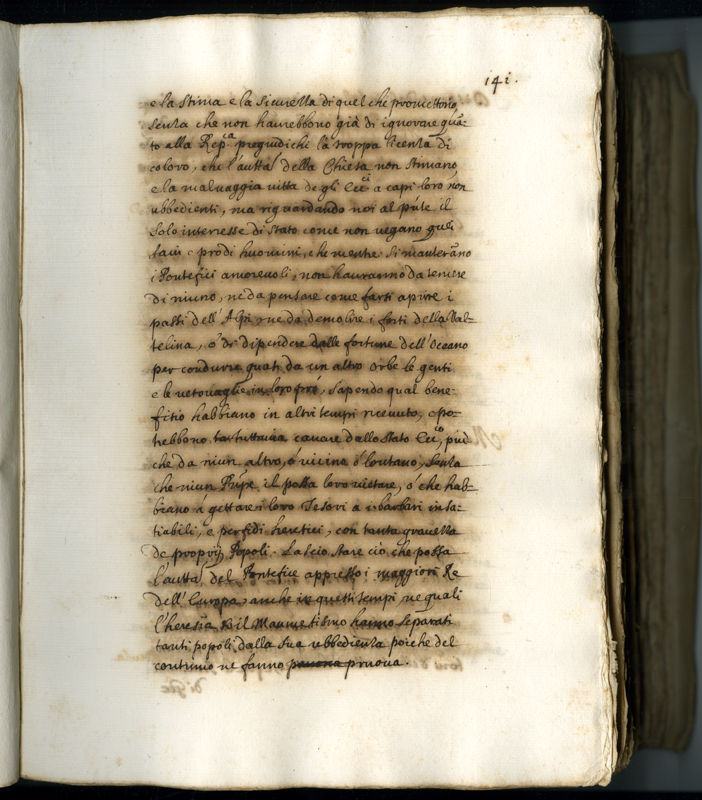 141.
e la stima e la sicurezza di quel che promettono
senza che non haurebbono già di ignorare quã-
to alla Rep.ca pregiudichi la troppa licenza di
coloro, che l'auttã della Chiesa non stimano
e la maluaggia uitta de gli Ecc.ci a capi loro non
ubbedienti, ma riguardando noi al pñte il
solo interesse di stato come non uegano quei
saui e prodi huomini, che mentre si manterãno
i Pontefici amoreuoli, non hauranno da temere
di niuno, ne da pensare come farsi aprire i
passi dell'Alpi, ne da demolire i forti della Val-
telina, ò di dipendere dalle fortune dell'Oceano
per condurre quasi da un altro orbe le genti
e le uetouaglie in loro prò, sapendo qual bene-
fitio habbiano in altri tempi riceuuto, e po-
trebbono tuttauia cauare dallo stato Ecc.co, più
che da niun altro, ò uicino ò lontano, senza
che niun Prñpe il possa loro uietare, ò che hab-
biano à gettare i loro Tesori a i barbari insa-
tiabili, e perfidi heretici, con tanta grauezza
de proprij Popoli. Lascio stare ciò che possa
l'auttã del Pontefice appresso i maggiori Re
dell'Europa, anche in questi tempi, ne quali
l'heresia, il Maumetismo hanno separati
tanti popoli dalla sua ubbedienza poiche del
continuo ne fanno pruoua.